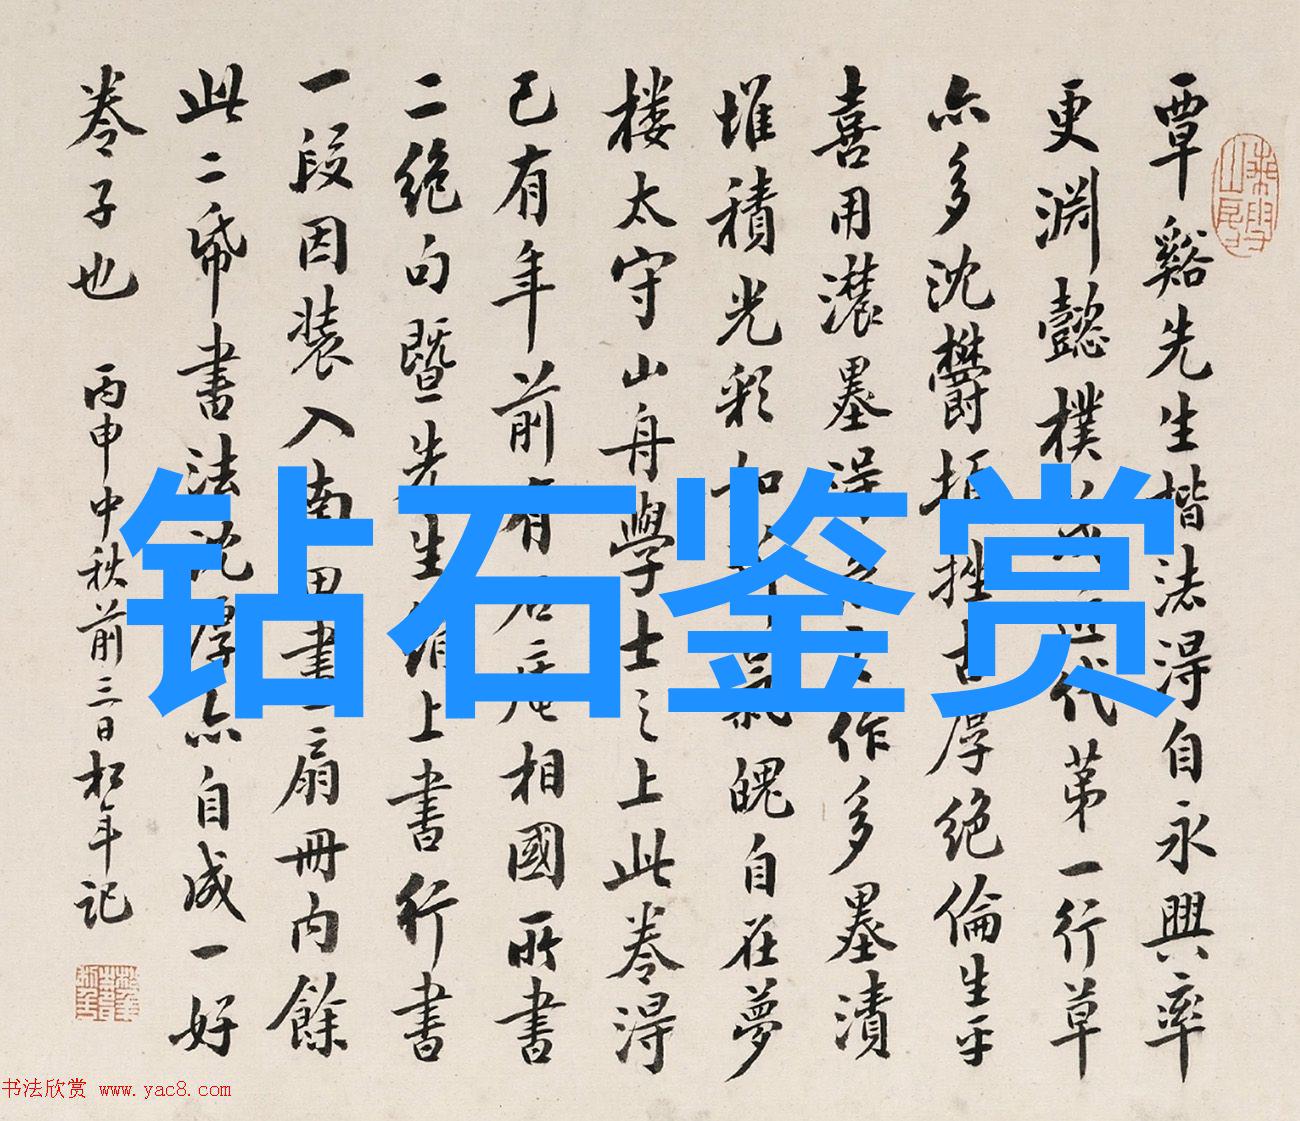 覃谿先生楷法得自永興率
更淵懿樸代第一行草
亦多沈欝挫古厚绝倫生平
喜用濃墨作多墨漬
堆積光彩氣魄自在夢
楼太守山舟學士之上此卷得
已有年前有石庵相國所書
二绝句暨先生上書行書
一段因装入南田畫扇冊内餘
此二帋書法沈厚亦自成一好
卷子也 丙申中秋前三日松年記
钻石鉴赏
书法欣赏 www.yac8.com